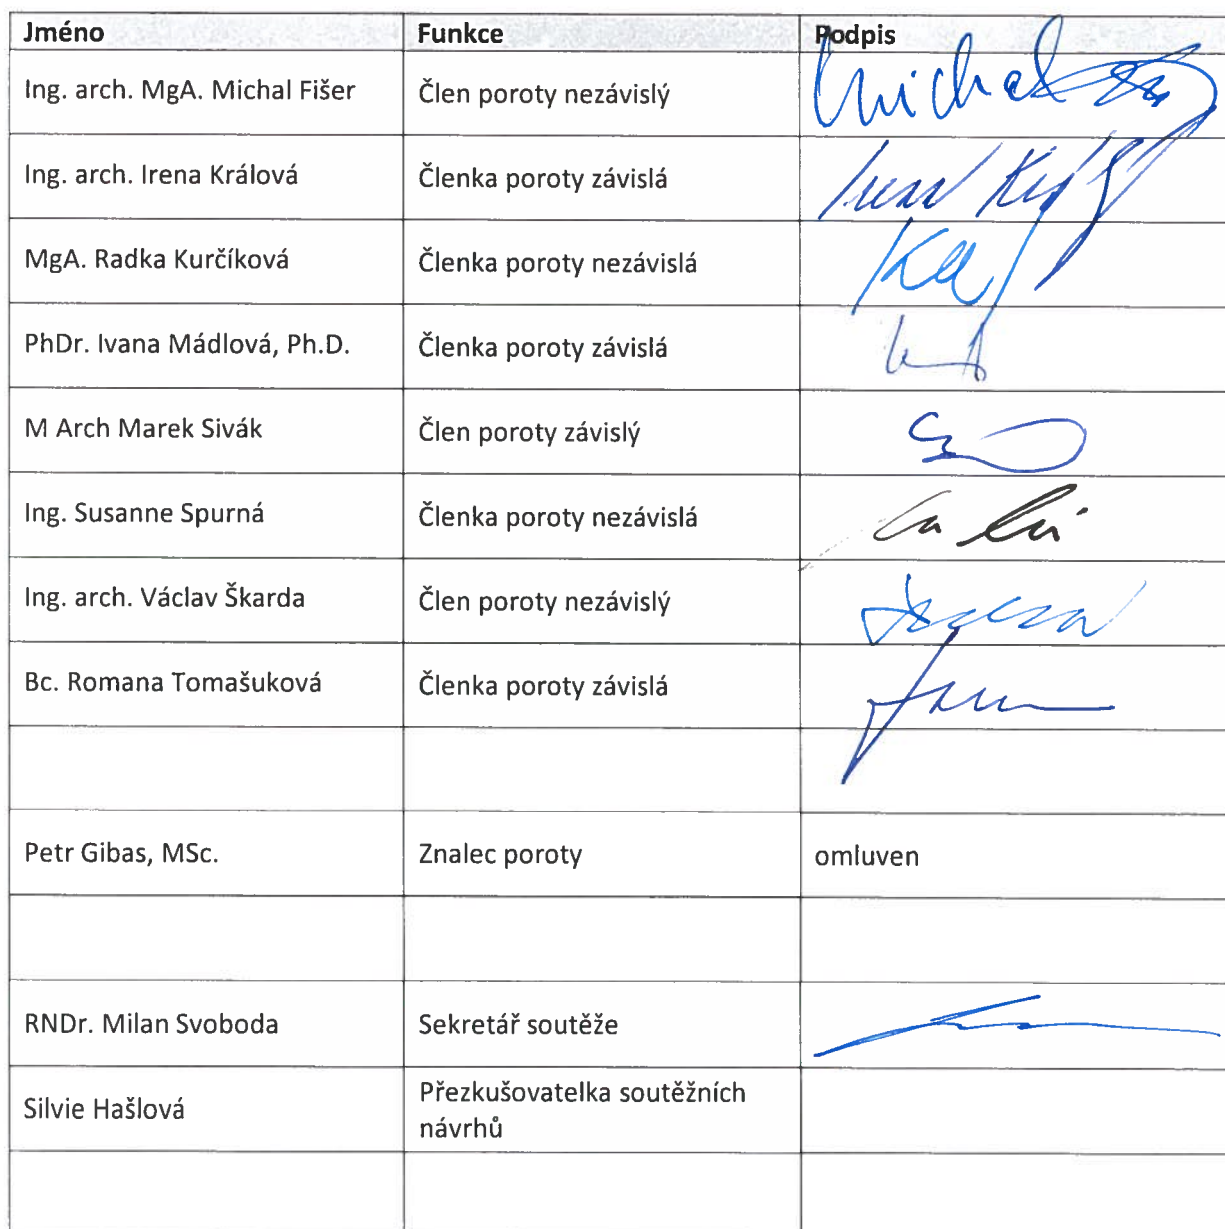 Jméno Funkce Podpis
Ing. arch. MgA. Michal Fišer Člen poroty nezávislý Michal
Ing. arch. Irena Králová Členka poroty závislá
MgA. Radka Kurčíková Členka poroty nezávislá
PhDr. Ivana Mádlová, Ph.D. Členka poroty závislá
M Arch Marek Sivák Člen poroty závislý
Ing. Susanne Spurná Členka poroty nezávislá
Ing. arch. Václav Škarda Člen poroty nezávislý
Bc. Romana Tomašuková Členka poroty závislá
Petr Gibas, MSc. Znalec poroty omluven
RNDr. Milan Svoboda Sekretář soutěže
Silvie Hašlová Přezkušovatelka soutěžních
návrhů